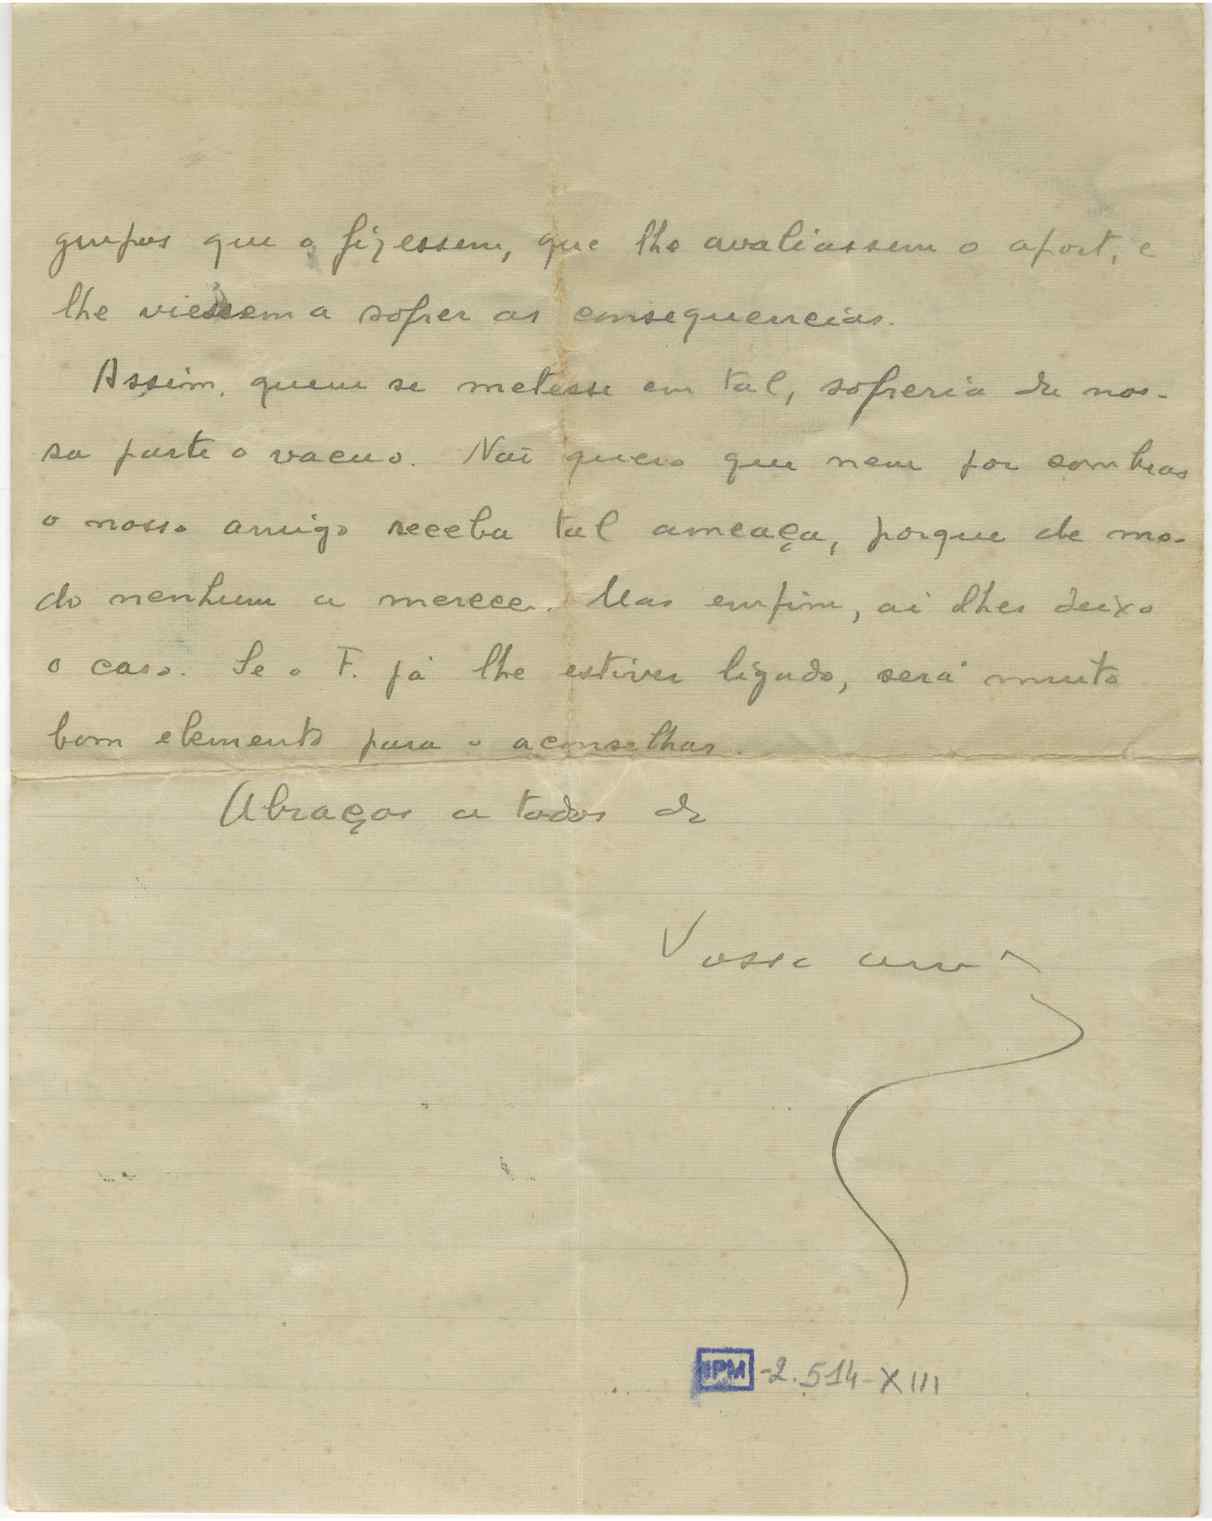 grupos que o fizessem, que lhe avaliassem o aport, e
lhe viessem a sofrer as consequencias.
Assim, quem se metesse em tal, sofreria da nos-
sa parte o vacuo. Não quero que nem por sombras
o nosso amigo receba tal ameaça, porque de mo-
do nenhum a merece. Mas emfim, ai lhes deixo
o caso. Se o F. já lhe estiver ligado, será muito
bom elemento para o aconselhar.
Abraços a todos de
Vosso
IPM -2.514-XIII